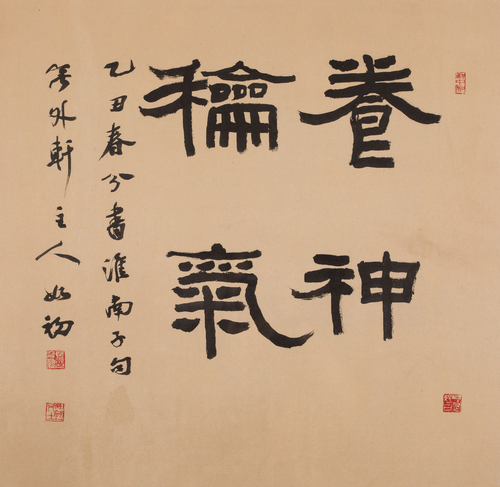 養神
龢氣
乙丑春分書淮南子句
外軒主人如初